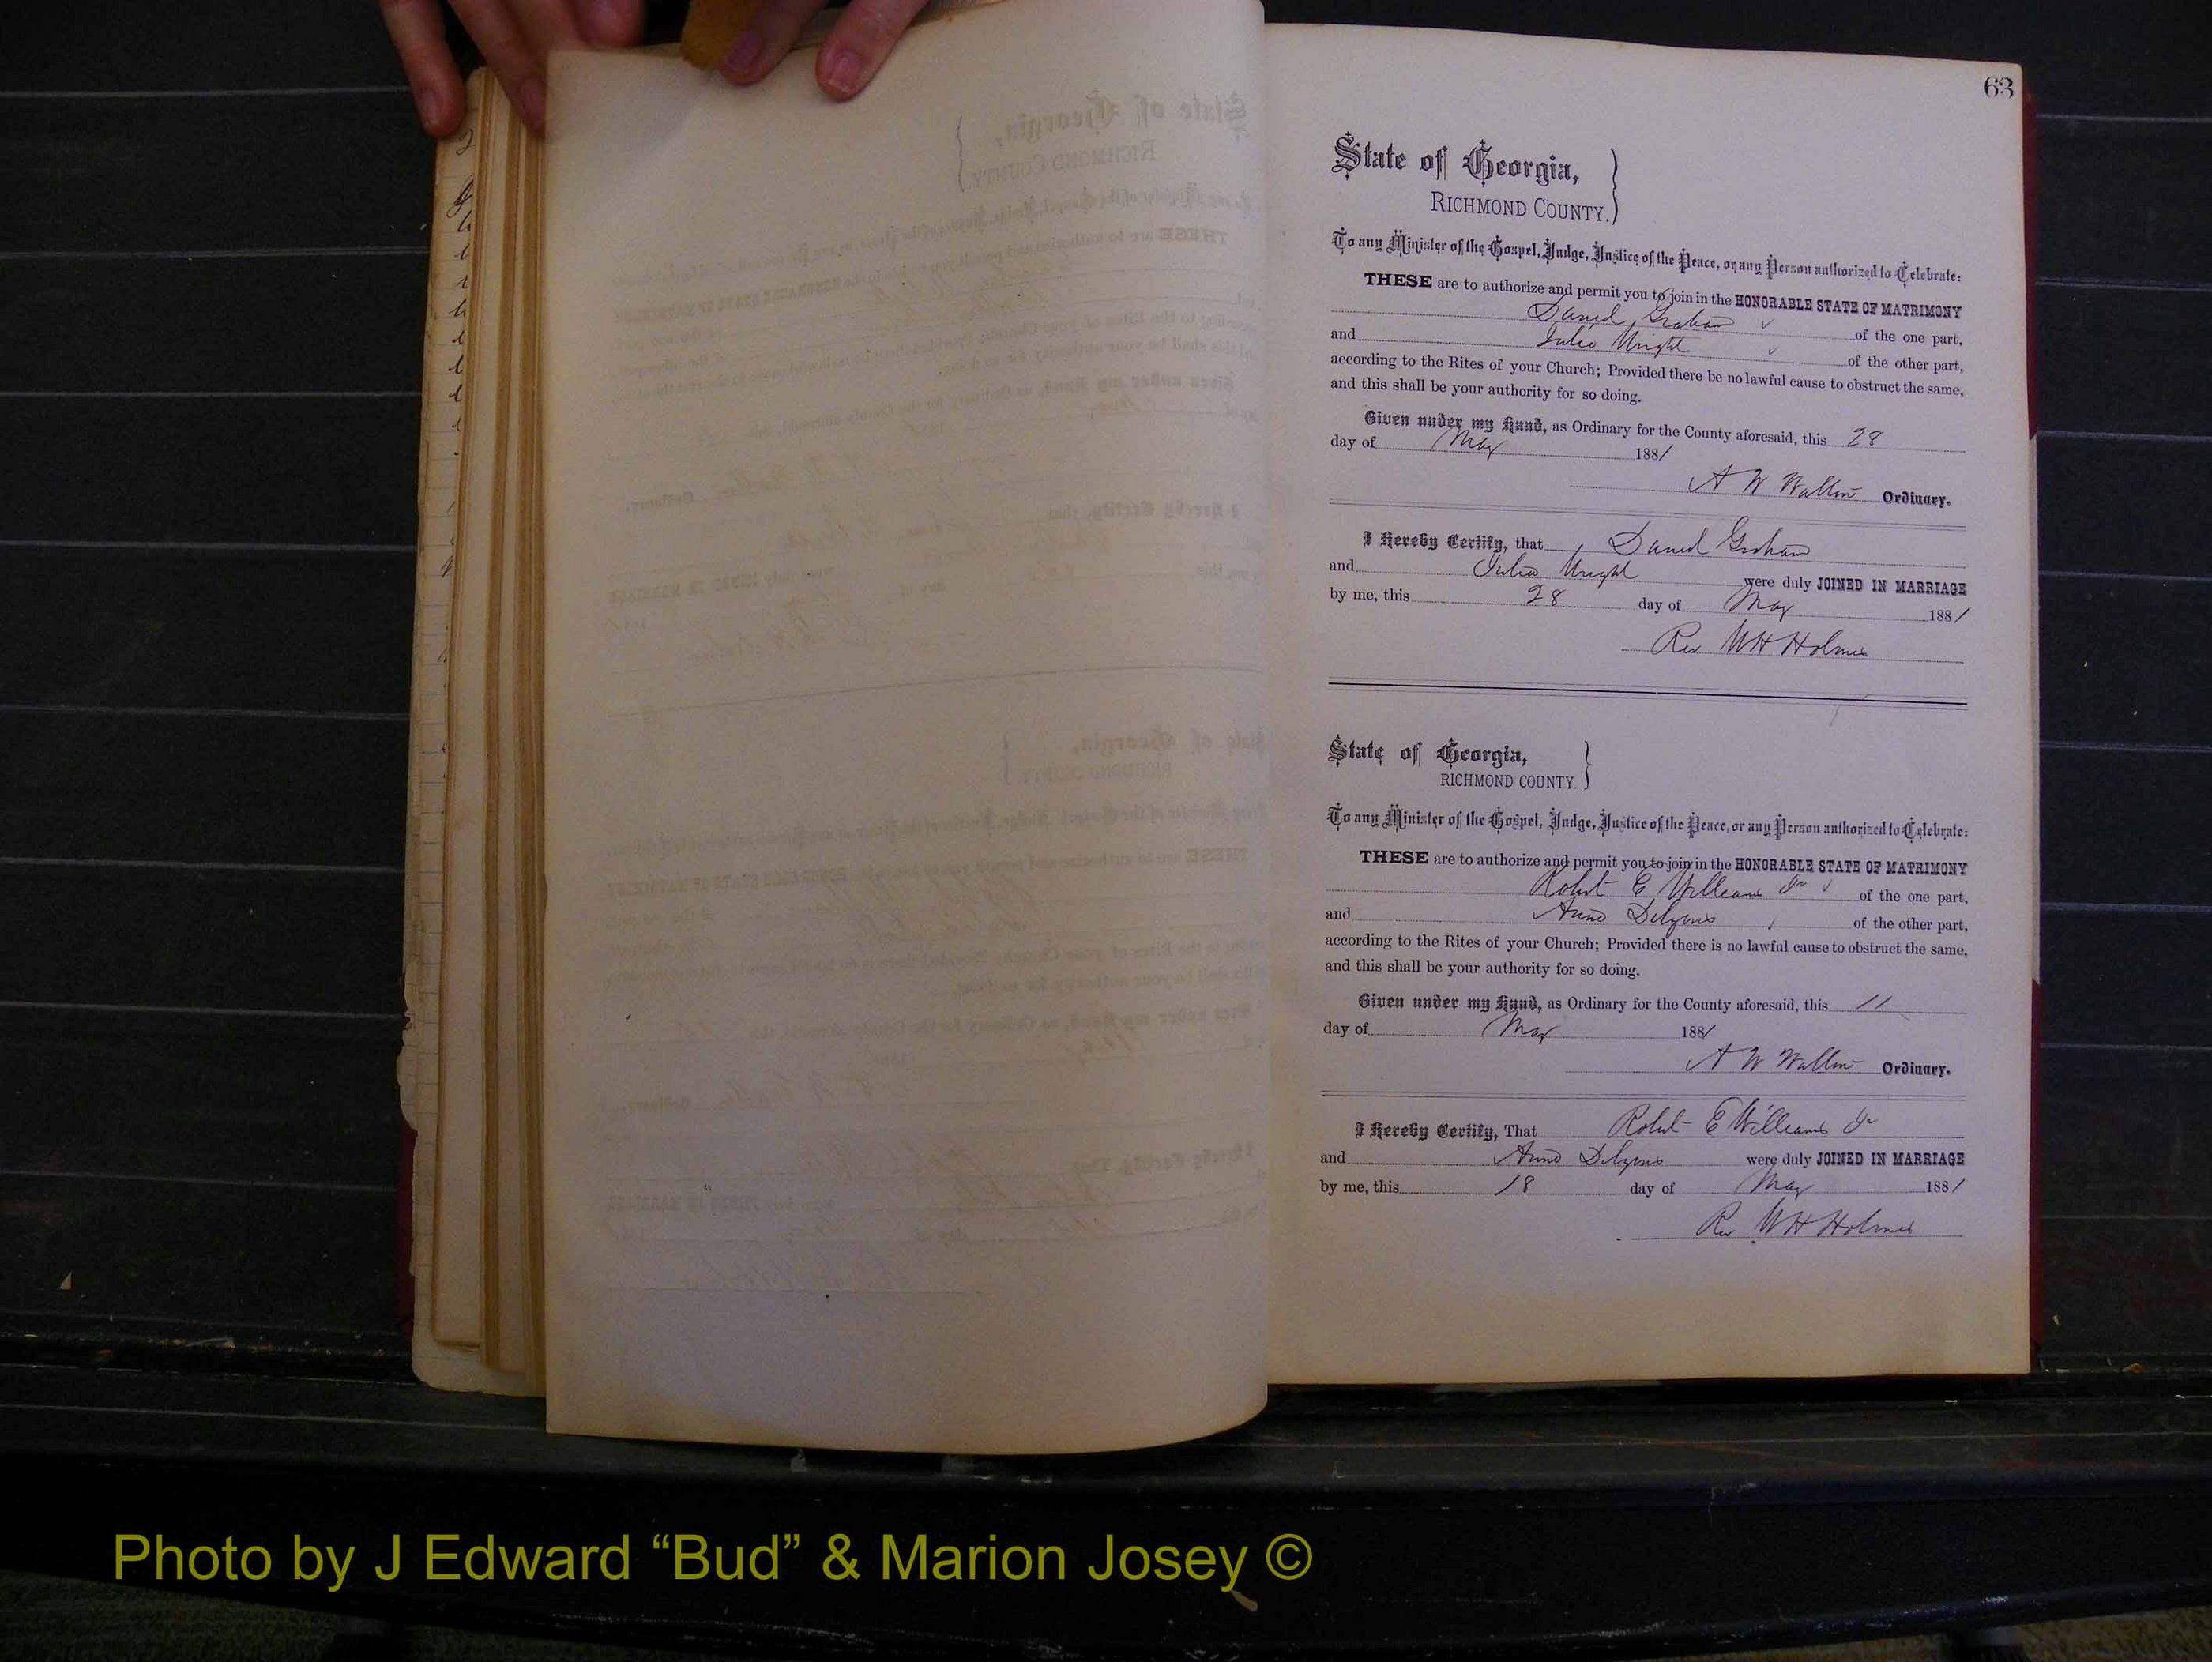 63
State of Georgia,
RICHMOND COUNTY.
To any Minister of the Gospel, Judge, Justice of the Peace, or any Person authorized to Celebrate:
THESE are to authorize and permit you to join in the HONORABLE STATE OF MATRIMONY
Daniel Graham of the one part,
and Julia Wright of the other part,
according to the Rites of your Church; Provided there be no lawful cause to obstruct the same,
and this shall be your authority for so doing.
Given under my Hand, as Ordinary for the County aforesaid, this 28
day of May 1881
A W Walton Ordinary.
I Hereby Certify, that Daniel Graham
and Julia Wright were duly JOINED IN MARRIAGE
by me, this 28 day of May 1881
Rev W H Holmes
State of Georgia,
RICHMOND COUNTY.
To any Minister of the Gospel, Judge, Justice of the Peace, or any Person authorized to Celebrate:
THESE are to authorize and permit you to join in the HONORABLE STATE OF MATRIMONY
Robert E Williams Jr of the one part,
and Anna of the other part,
according to the Rites of your Church; Provided there is no lawful cause to obstruct the same,
and this shall be your authority for so doing.
Given under my Hand, as Ordinary for the County aforesaid, this 11
day of May 1881
A W Walton Ordinary.
I Hereby Certify, That Robert E Williams Jr
and Anna were duly JOINED IN MARRIAGE
by me, this 18 day of May 1881
Rev W H Holmes
Photo by J Edward “Bud” & Marion Josey ©